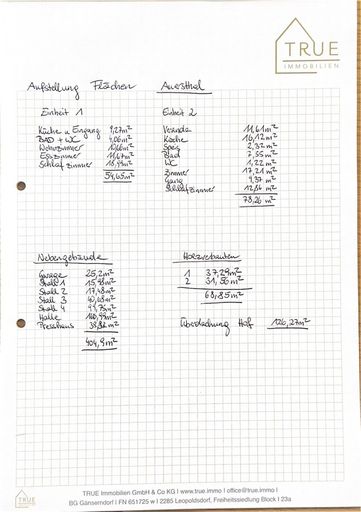 TRUE
IMMOBILIEN
Aufstellung Flächen Auersthal
Einheit 1
Küche u Eingang 9,27m²
BAD + WC 4,06m²
Wohnzimmer
Esszimmer 11,67m²
Schlafzimmer 18,99m²
54,65m²
Einheit 2
Veranda 11,61m²
Küche 16,12m²
Speis 2,32m²
Bad 7,55m²
WC 1,22m²
Zimmer 17,21m²
Gang
Schlafzimmer
Nebengebäude
Garage 25,2m²
Stall 1
Stall 2 17,48m²
Stall 3
Stall 4
Halle
Presshaus
404,9m²
Holzverbauten
1 37,29m²
2 31,56m²
68,85m²
Überdachung Hof 126,27m²
TRUE
IMMOBILIEN
TRUE Immobilien GmbH & Co KG I www.true.immo I office@true.immo I
BG Gänserndorf I FN 651725 w I 2285 Leopoldsdorf, Freiheitssiedlung Block I 23a